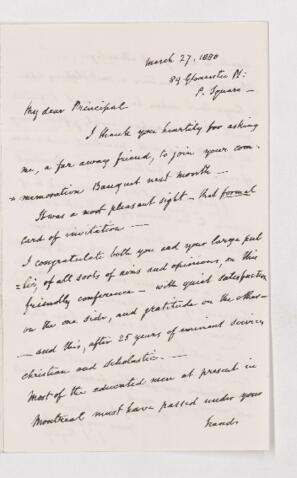 March 27, 1880
89 Gloucester Pl:
P. Square —
My dear Principal
I thank you heartily for asking
me, a far away friend, to join your com-
- memoration Banquet next month —
It was a most pleasant sight — that formal
card of invitation —
I congratulate both you and your large pub
= lic, of all sorts of aims and opinions, on this
friendly conference — with quiet satisfaction
on the one side, and gratitude on the other —
— and this, after 25 years of eminent services
christian and scholastic. —
Most of the educated men at present in
Montreal must have passed under your
hands